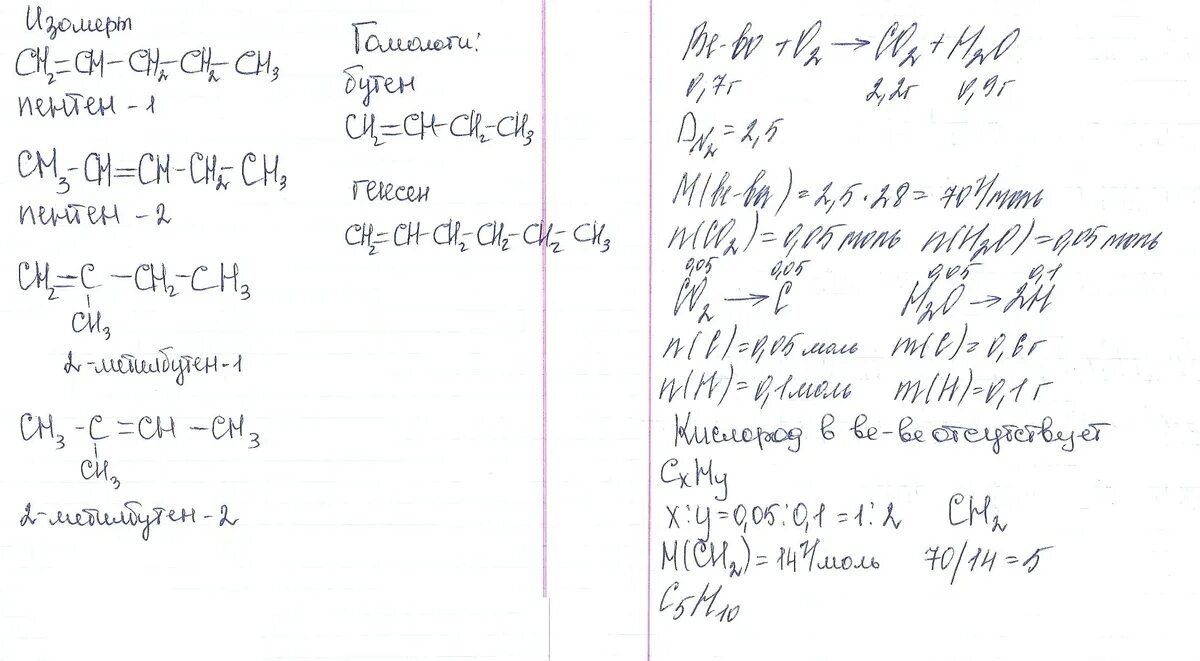 Изомеры
CH₂=CH–CH₂–CH₂–CH₃
пентен -1
CH₃-CH=CH-CH₂-CH₃
пентен -2
CH₂=C–CH₂–CH₃
CH₃
2-метилбутен-1
CH₃-C=CH-CH₃
CH₃
2-метилбутен-2
Гомологи:
бутен
CH₂=CH-CH₂-CH₃
гексен
CH₂=CH-CH₂-CH₂-CH₂-CH₃
Ве-во + O₂ → CO₂ + H₂O
0,7г 2,2г 0,9г
D N₂ = 2,5
M(ве-ва) = 2,5·28 = 70 г/моль
n(CO₂) = 0,05 моль n(H₂O) = 0,05 моль
0,05 0,05 0,05 0,1
CO₂ → C H₂O → 2H
n(C) = 0,05 моль m(C) = 0,6г
n(H) = 0,1 моль m(H) = 0,1 г
Кислород в ве-ве отсутствует
CxHy
x:y = 0,05:0,1 = 1:2 CH₂
M(CH₂) = 14 г/моль 70/14 = 5
C₅H₁₀